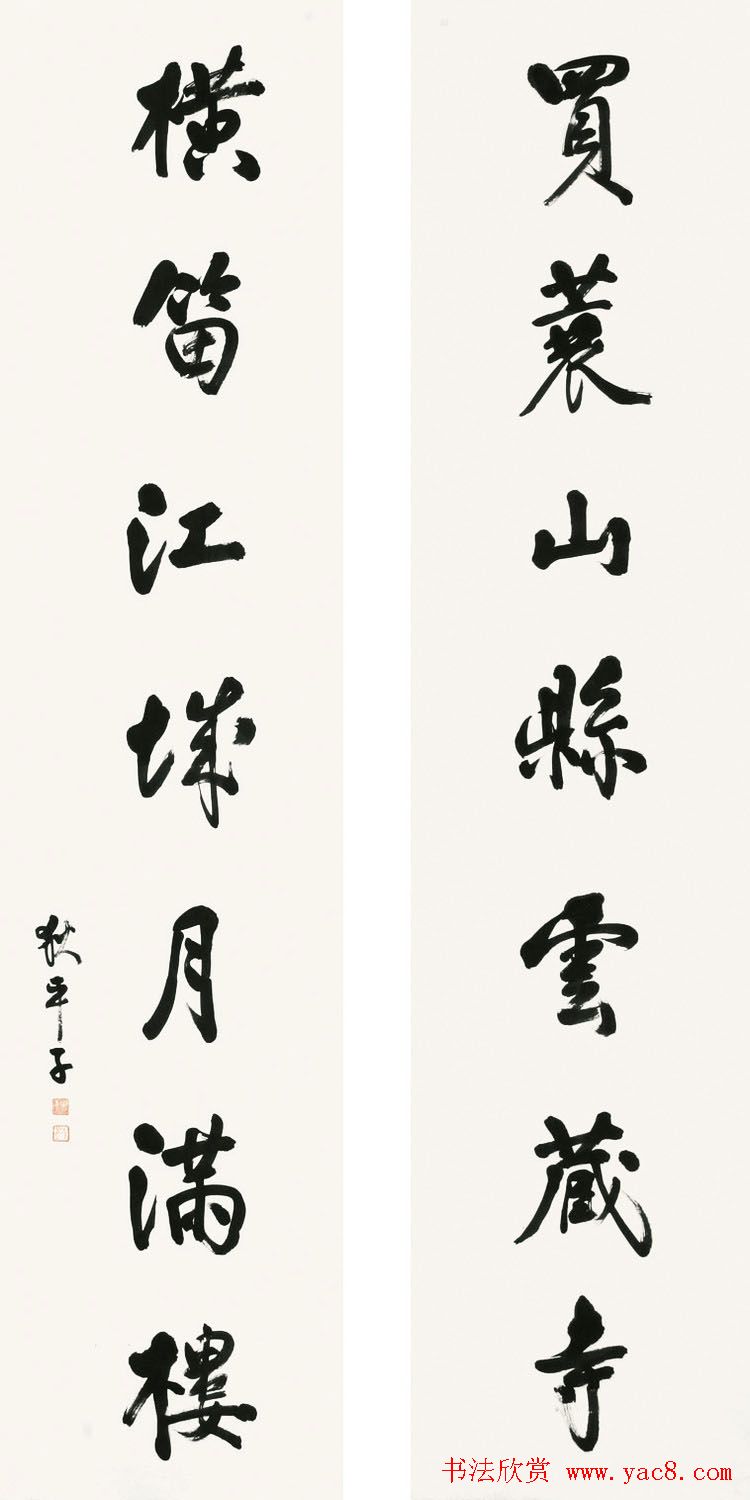 買蓑山縣雲藏寺
橫笛江城月滿樓
狄平子
书法欣赏 www.yac8.com